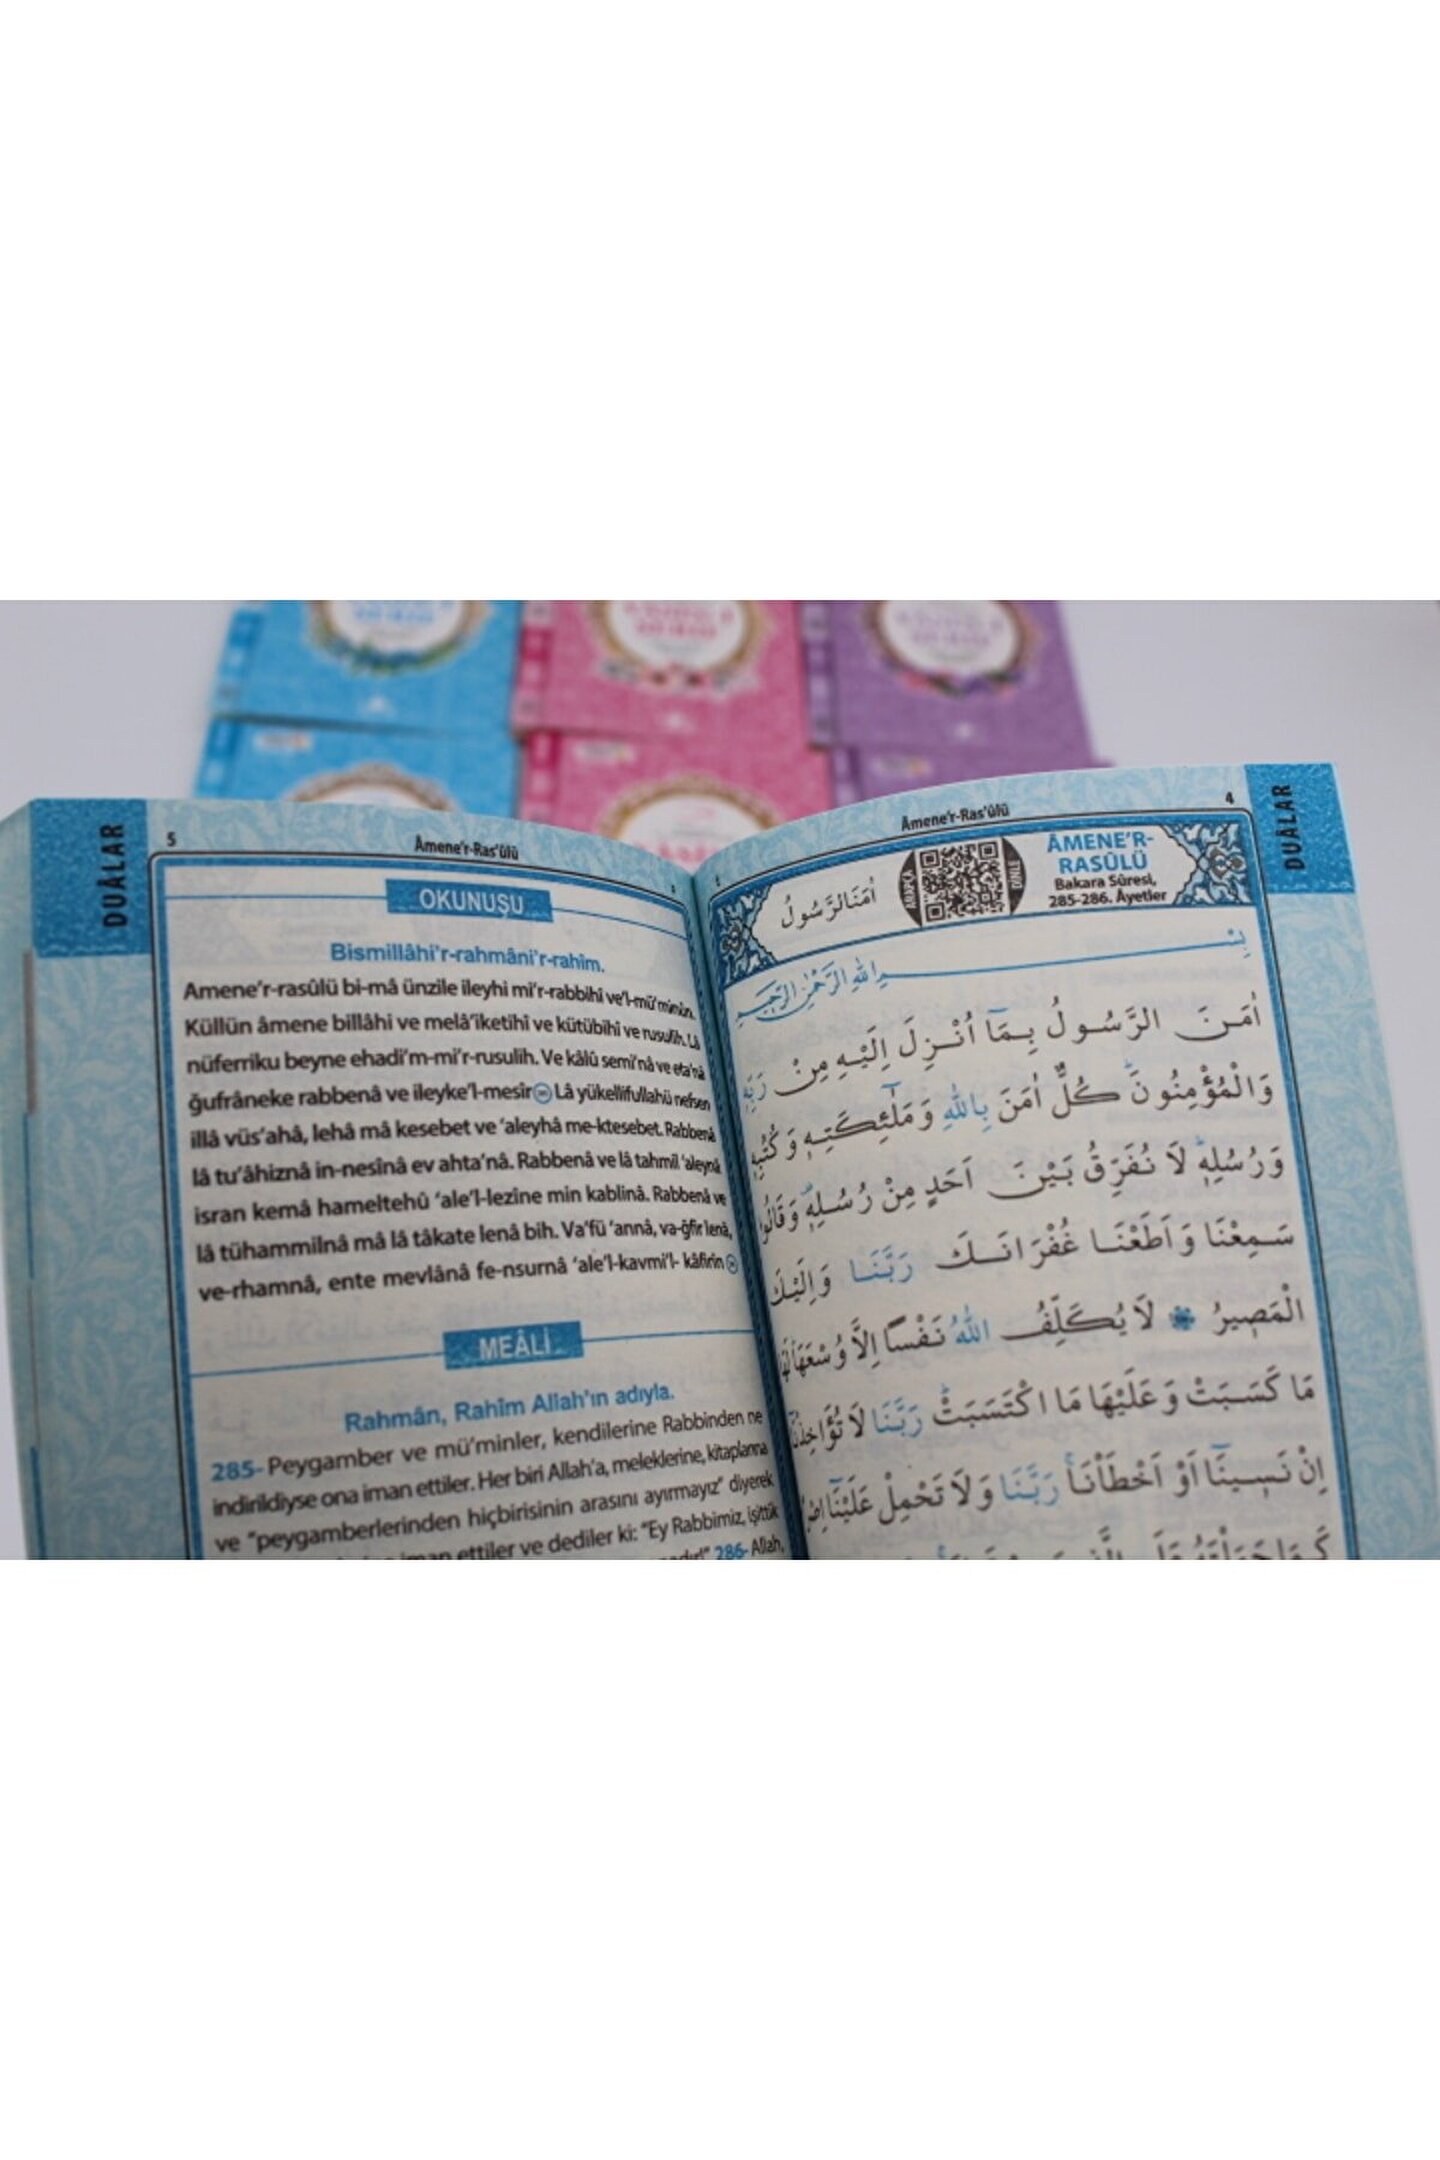 DUÂLAR
5
Âmene'r-Ras'ûlü
OKUNUŞU
Bismillâhi'r-rahmâni'r-rahîm.
Amene'r-rasûlü bi-mâ ünzile ileyhi mi'r-rabbihî ve'l-mü'minûn.
Küllün âmene billâhi ve melâ'iketihî ve kütübihî ve rusulih. Lâ
nüferriku beyne ehadi'm-mi'r-rusulih. Ve kâlû semi'nâ ve eta'nâ
ğufrâneke rabbenâ ve ileyke'l-mesîr Lâ yükellifullahü nefsen
illâ vüs'ahâ, lehâ mâ kesebet ve 'aleyhâ me-ktesebet. Rabbenâ
lâ tu'âhiznâ in-nesînâ ev ahta'nâ. Rabbenâ ve lâ tahmil 'aleynâ
isran kemâ hameltehû 'ale'l-lezîne min kablinâ. Rabbenâ ve
lâ tühammilnâ mâ lâ tâkate lenâ bih. Va'fü 'annâ, va-ğfir lenâ,
ve-rhamnâ, ente mevlânâ fe-nsurnâ 'ale'l-kavmi'l- kâfirîn
MEÂLİ
Rahmân, Rahîm Allah'ın adıyla.
285- Peygamber ve mü'minler, kendilerine Rabbinden ne
indirildiyse ona iman ettiler. Her biri Allah'a, meleklerine, kitaplarına
ve "peygamberlerinden hiçbirisinin arasını ayırmayız" diyerek
iman ettiler ve dediler ki: "Ey Rabbimiz, işittik
286- Allah,
Âmene'r-Ras'ûlü
4
DUÂLAR
اٰمَنَ الرَّسُولُ
ARAPÇA
DİNLE
ÂMENE'R-
RASÛLÜ
Bakara Sûresi,
285-286. Âyetler
بِسْمِ اللّٰهِ الرَّحْمٰنِ الرَّحِيمِ
اٰمَنَ الرَّسُولُ بِمَٓا اُنْزِلَ اِلَيْهِ مِنْ رَبِّهِ
وَالْمُؤْمِنُونَۜ كُلٌّ اٰمَنَ بِاللّٰهِ وَمَلٰٓئِكَتِهِ وَكُتُبِهِ
وَرُسُلِهِۜ لَا نُفَرِّقُ بَيْنَ اَحَدٍ مِنْ رُسُلِهِ۠ وَقَالُوا
سَمِعْنَا وَاَطَعْنَا غُفْرَانَكَ رَبَّنَا وَاِلَيْكَ
الْمَصِيرُ لَا يُكَلِّفُ اللّٰهُ نَفْسًا اِلَّا وُسْعَهَاۜ لَهَا
مَا كَسَبَتْ وَعَلَيْهَا مَا اكْتَسَبَتْۜ رَبَّنَا لَا تُؤَاخِذْنَٓا
اِنْ نَسِينَٓا اَوْ اَخْطَأْنَاۚ رَبَّنَا وَلَا تَحْمِلْ عَلَيْنَٓا